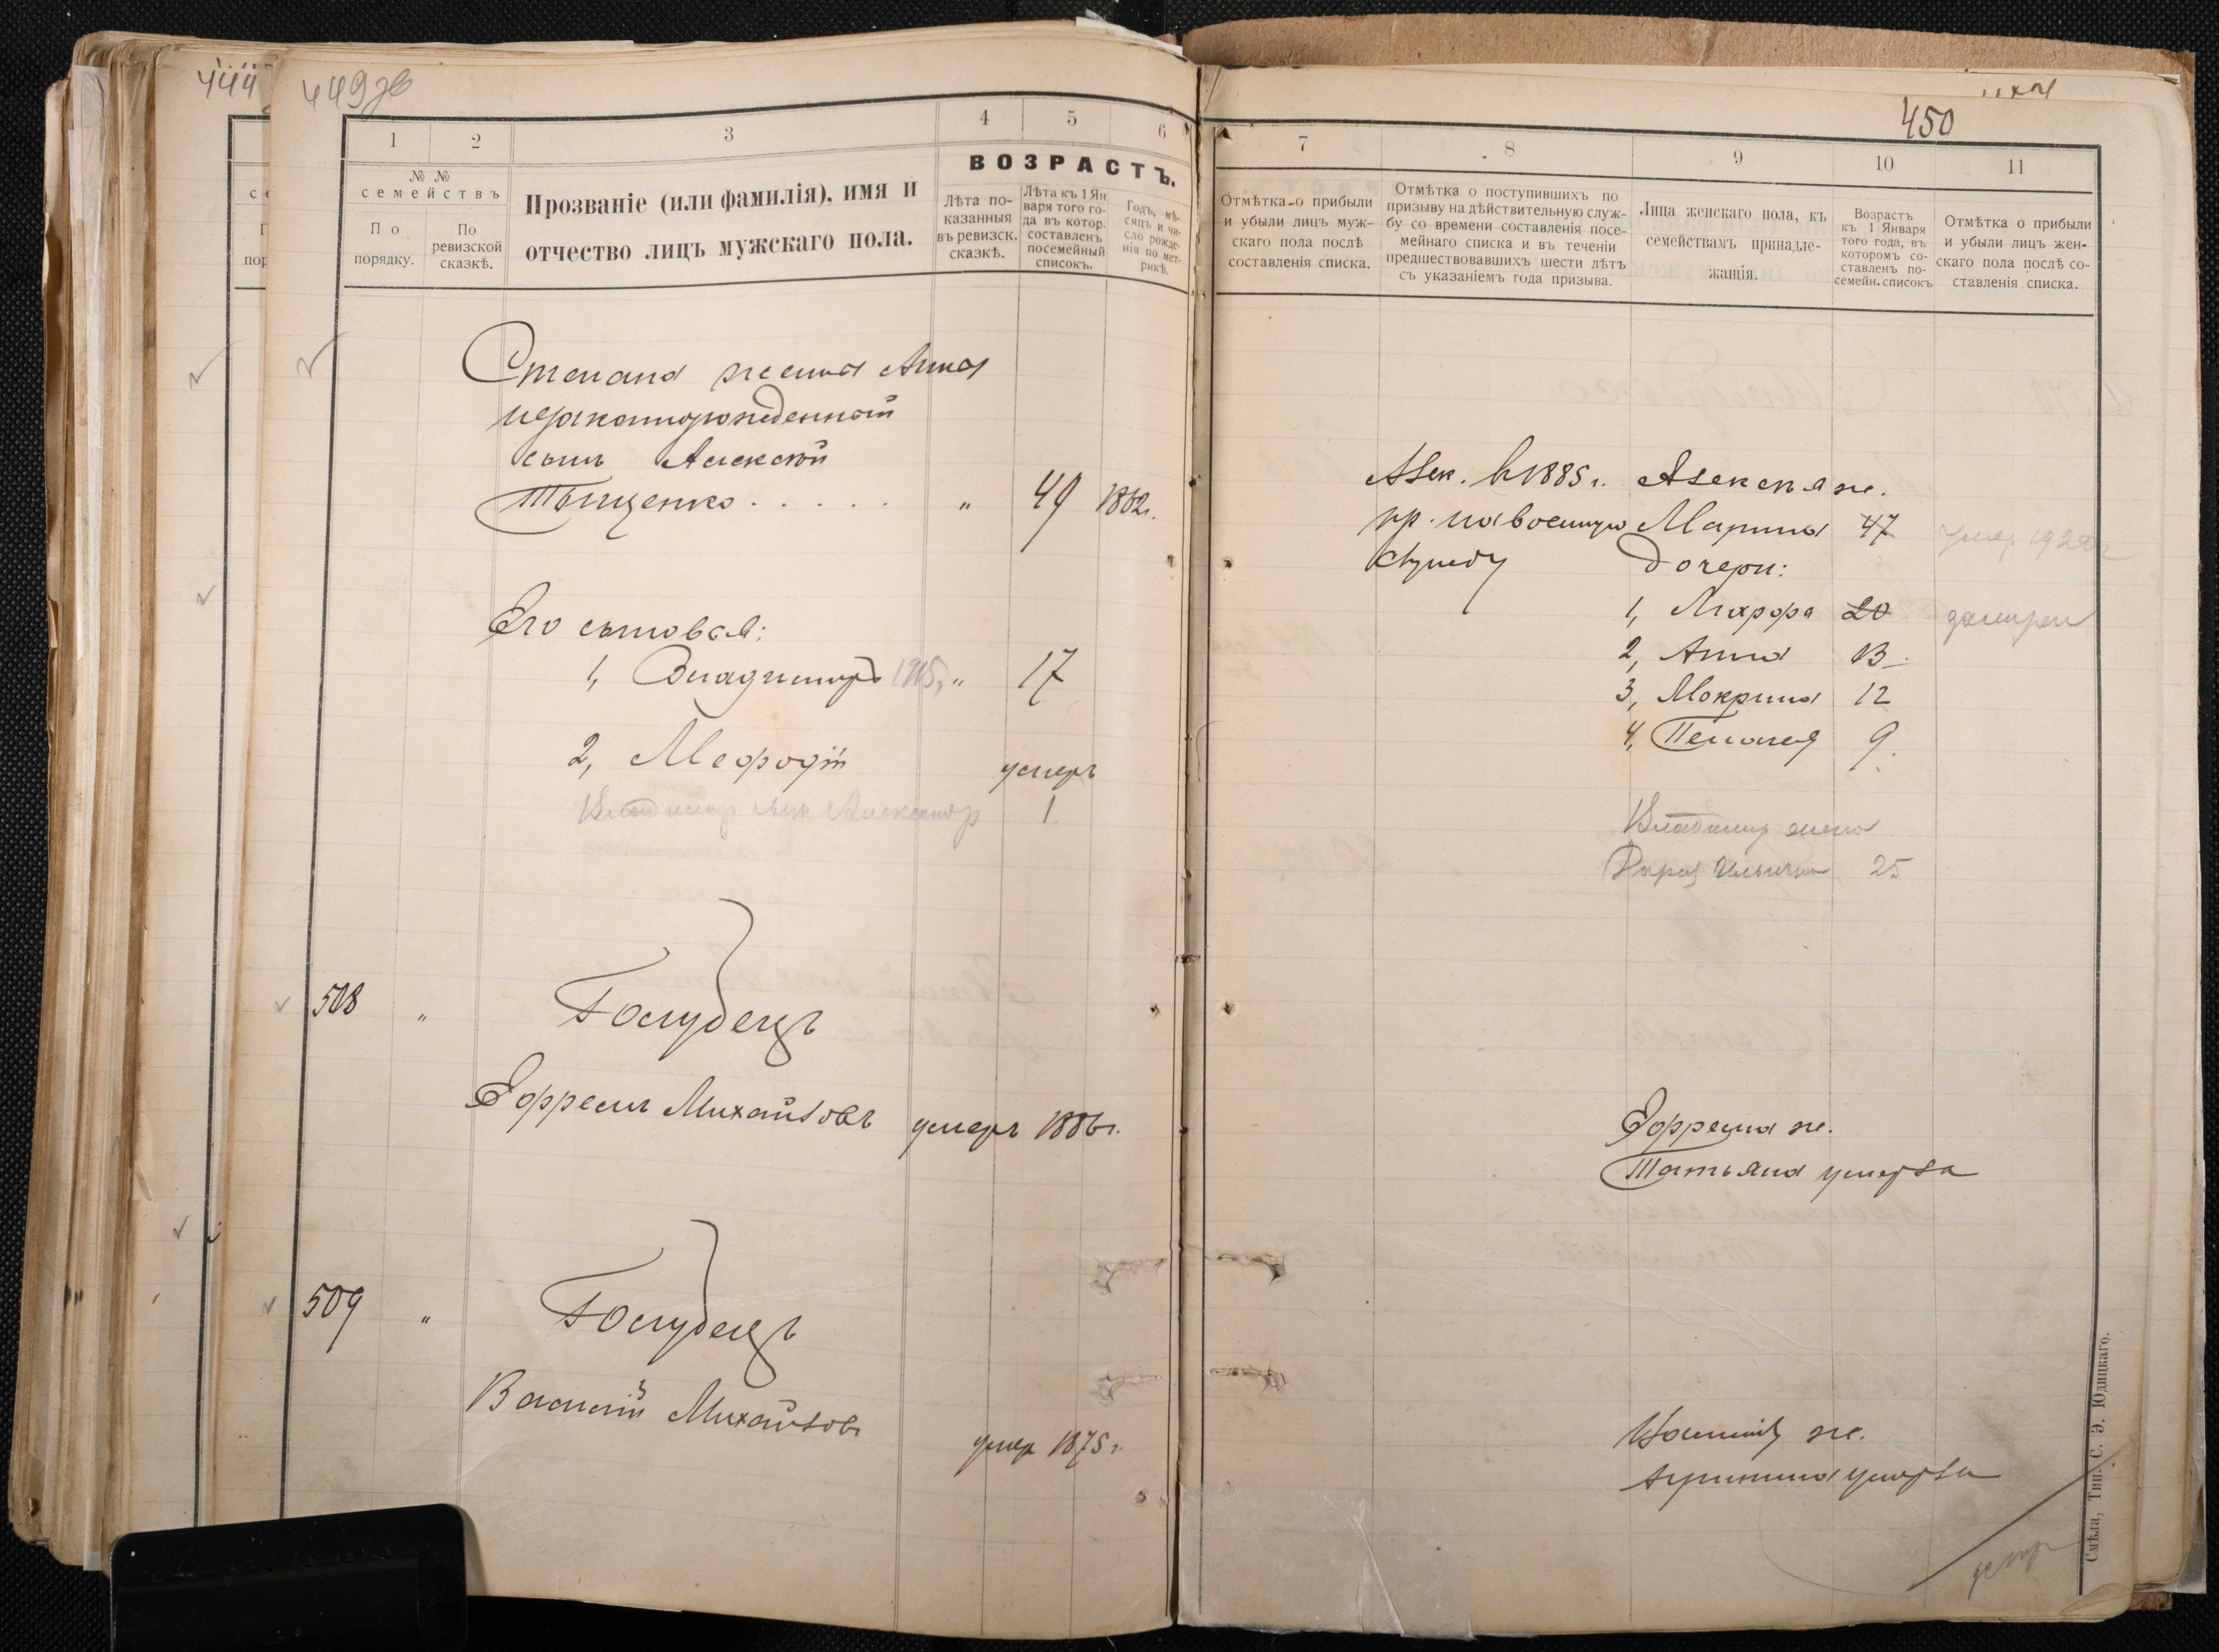 444
449 зв
1
2
3
4
5
6
№ №
семействъ
По порядку.
По ревизской сказкѣ.
Прозваніе (или фамилія), имя и
отчество лицъ мужскаго пола.
ВОЗРАСТЪ.
Лѣта по-
казанныя
въ ревизск.
сказкѣ.
Лѣта къ 1 Ян
варя того го-
да въ котор.
составленъ
посемейный
списокъ.
Годъ, мѣ-
сяцъ и чи-
сло рожде-
нія по мет-
рикѣ.
Степана жена Анна
незаконнорожденный
сынъ Алексѣй
Тыщенко . . . . . " 49 1862г.
Его сыновья:
1, Владимиръ " 17
2, Мефодій умеръ
Владимир сын Александр 1
508 " Голубецъ
Ефремъ Михайловъ умеръ 1886г.
509 " Голубецъ
Василій Михайловъ
умеръ 1875г.
450
7
8
9
10
11
Отмѣтка о прибыли
и убыли лицъ муж-
скаго пола послѣ
составленія списка.
Отмѣтка о поступившихъ по
призыву на дѣйствительную служ-
бу со времени составленія посе-
мейнаго списка и въ теченіи
предшествовавшихъ шести лѣтъ
съ указаніемъ года призыва.
Лица женскаго пола, къ
семействамъ принадле-
жащія.
Возрастъ
къ 1 Января
того года, въ
которомъ со-
ставленъ по-
семейн. списокъ
Отмѣтка о прибыли
и убыли лицъ жен-
скаго пола послѣ со-
ставленія списка.
Алек. в 1885г. Алексѣя ж.
пр. на военную Марина 47
службу Дочери:
1, 20
2, Анна 13
3, Мокрина 12
4, Пелагея 9.
Владимир жена
25
Ефрема ж.
Татьяна умерла
Василія ж.
умерла
Смѣла, Тип. С. Э. Юдицкаго.